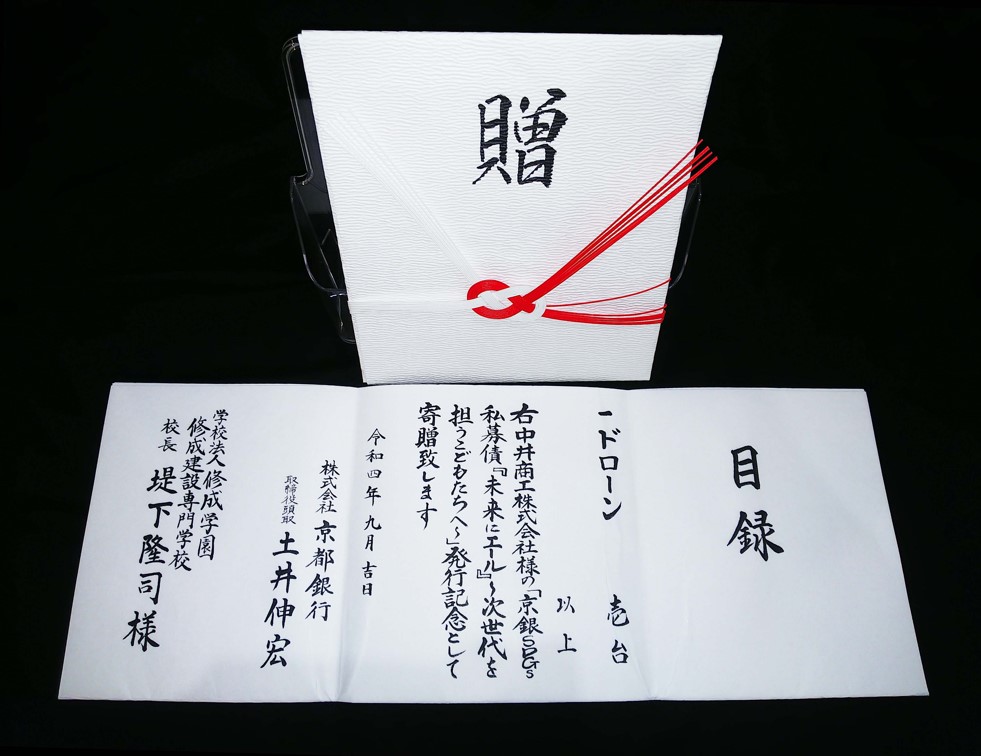 贈
目録
一ドローン 壱台
以上
右中井商工株式会社様の「京銀SDGs
私募債『未来にエール』～次世代を
担うこどもたちへ～」発行記念として
寄贈致します
令和四年九月吉日
株式会社 京都銀行
取締役頭取 土井伸宏
学校法人修成学園
修成建設専門学校
校長 堤下隆司様